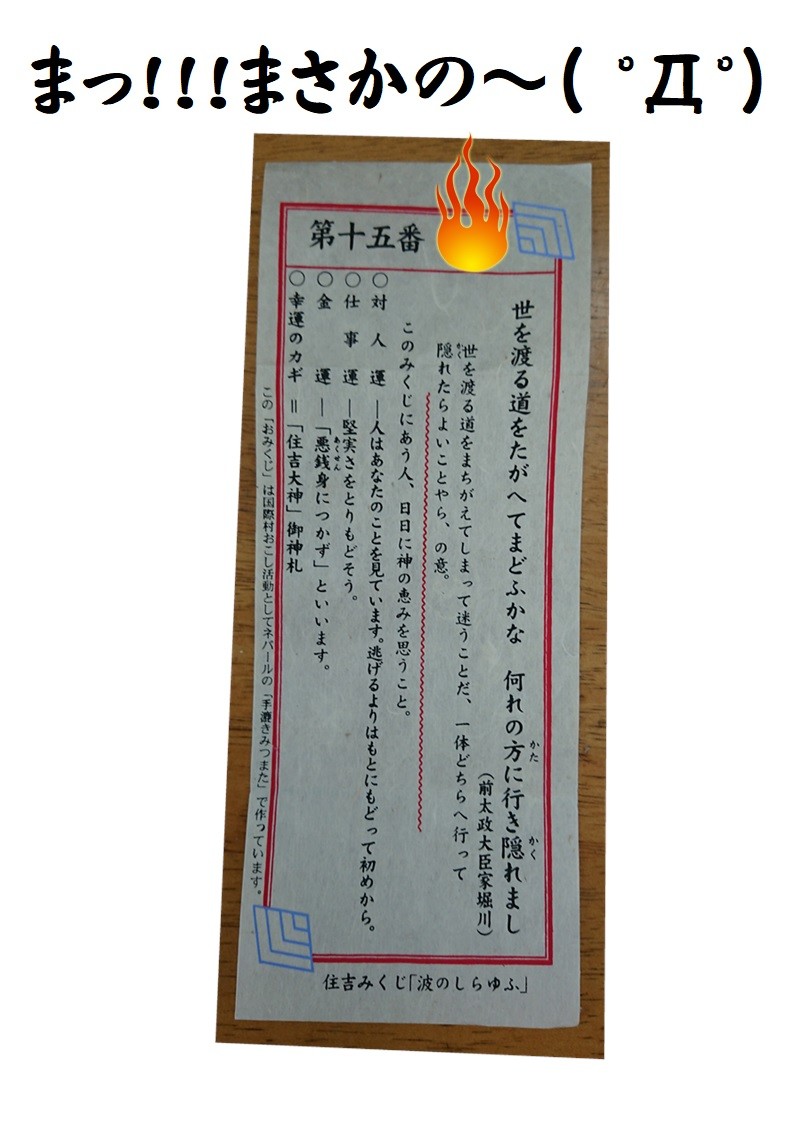 まっ!!!まさかの～( ﾟДﾟ)
第十五番
世を渡る道をたがへてまどふかな　何れの方に行き隠れまし
かた
かく
（前太政大臣家堀川）
世を渡る道をまちがえてしまって迷うことだ、一体どちらへ行って
隠れたらよいことやら、の意。
かく
このみくじにあう人、日日に神の恵みを思うこと。
○対人運―人はあなたのことを見ています。逃げるよりはもとにもどって初めから。
○仕事運―堅実さをとりもどそう。
○金　運―「悪銭身につかず」といいます。
あくせん
○幸運のカギ＝「住吉大神」御神札
この「おみくじ」は国際村おこし活動としてネパールの「手漉きみつまた」で作っています。
住吉みくじ「波のしらゆふ」